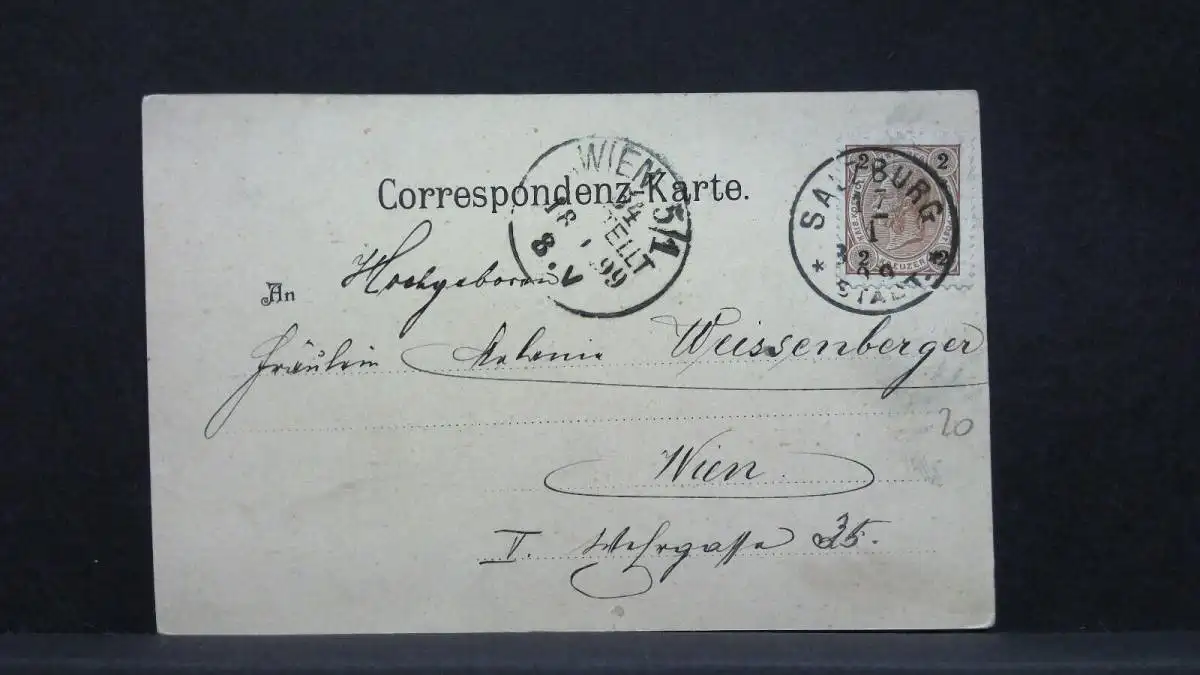 Correspondenz-Karte.
WIEN 5/1
BESTELLT
18
8.V
99
SALZBURG
7
1
99
* STADT. *
2 2
KREUZER
2 2
An
Hochgeboren
Fräulein Melanie Weissenberger
20
Wien
V. Wehrgasse 35.